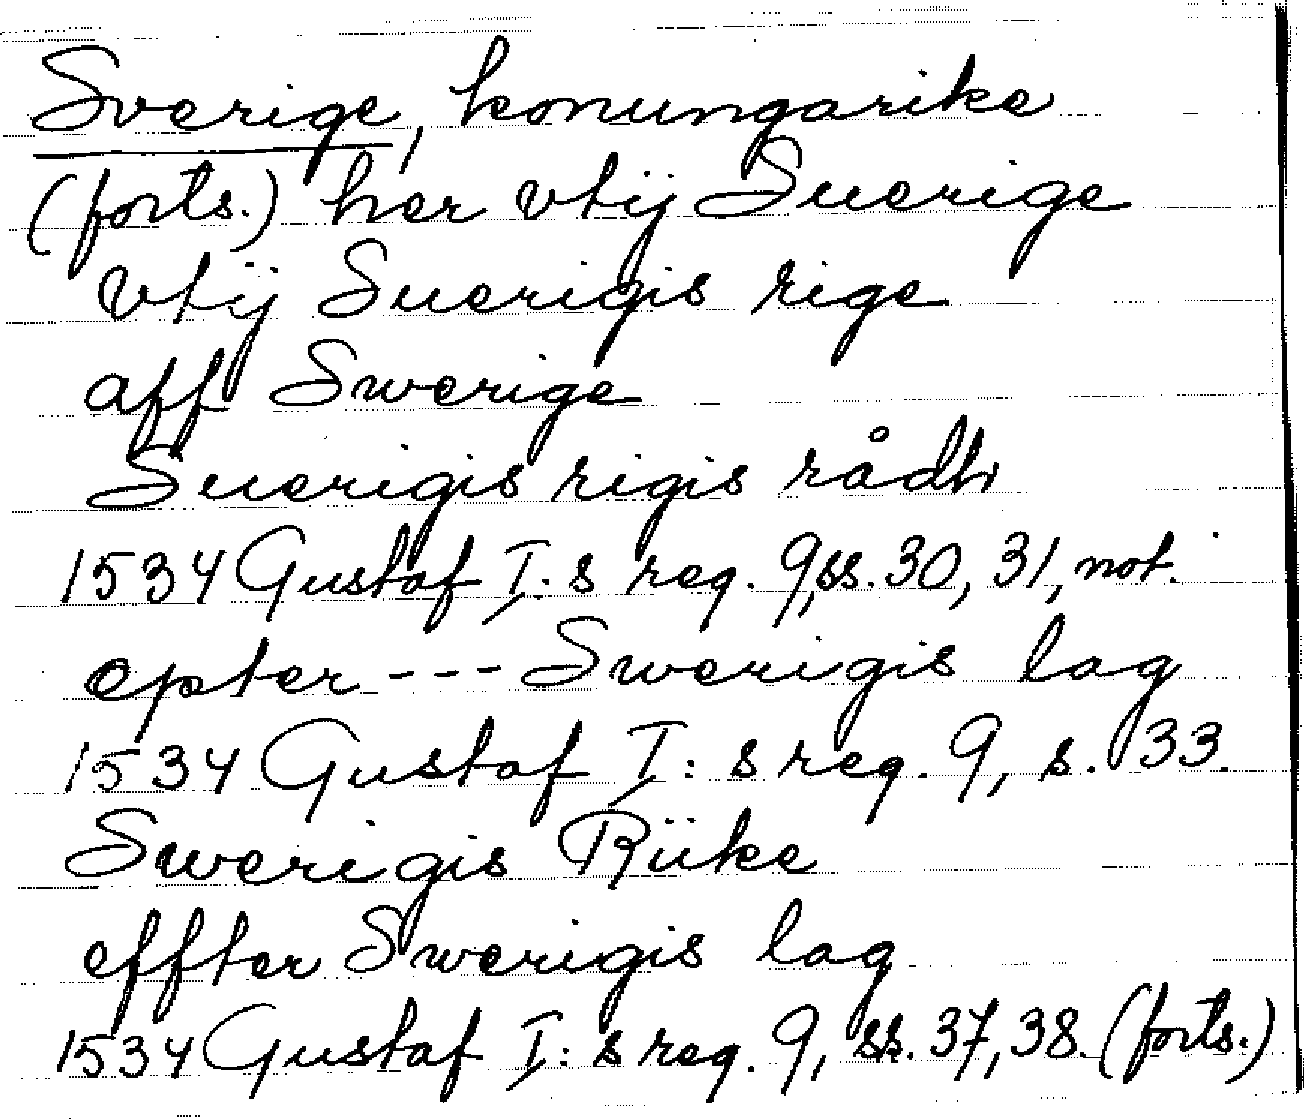 Sverige, konungarike
(forts.) her vtij Suerige
vtij Suerigis rige
aff Swerige
Suerigis rigis rådh
1534 Gustaf I:s reg. 9, ss. 30, 31, not.
epter --- Swerigis lag
1534 Gustaf I:s reg. 9, s. 33.
Swerigis Riike
effter Swerigis lag
1534 Gustaf I:s reg. 9, ss. 37, 38. (forts.)